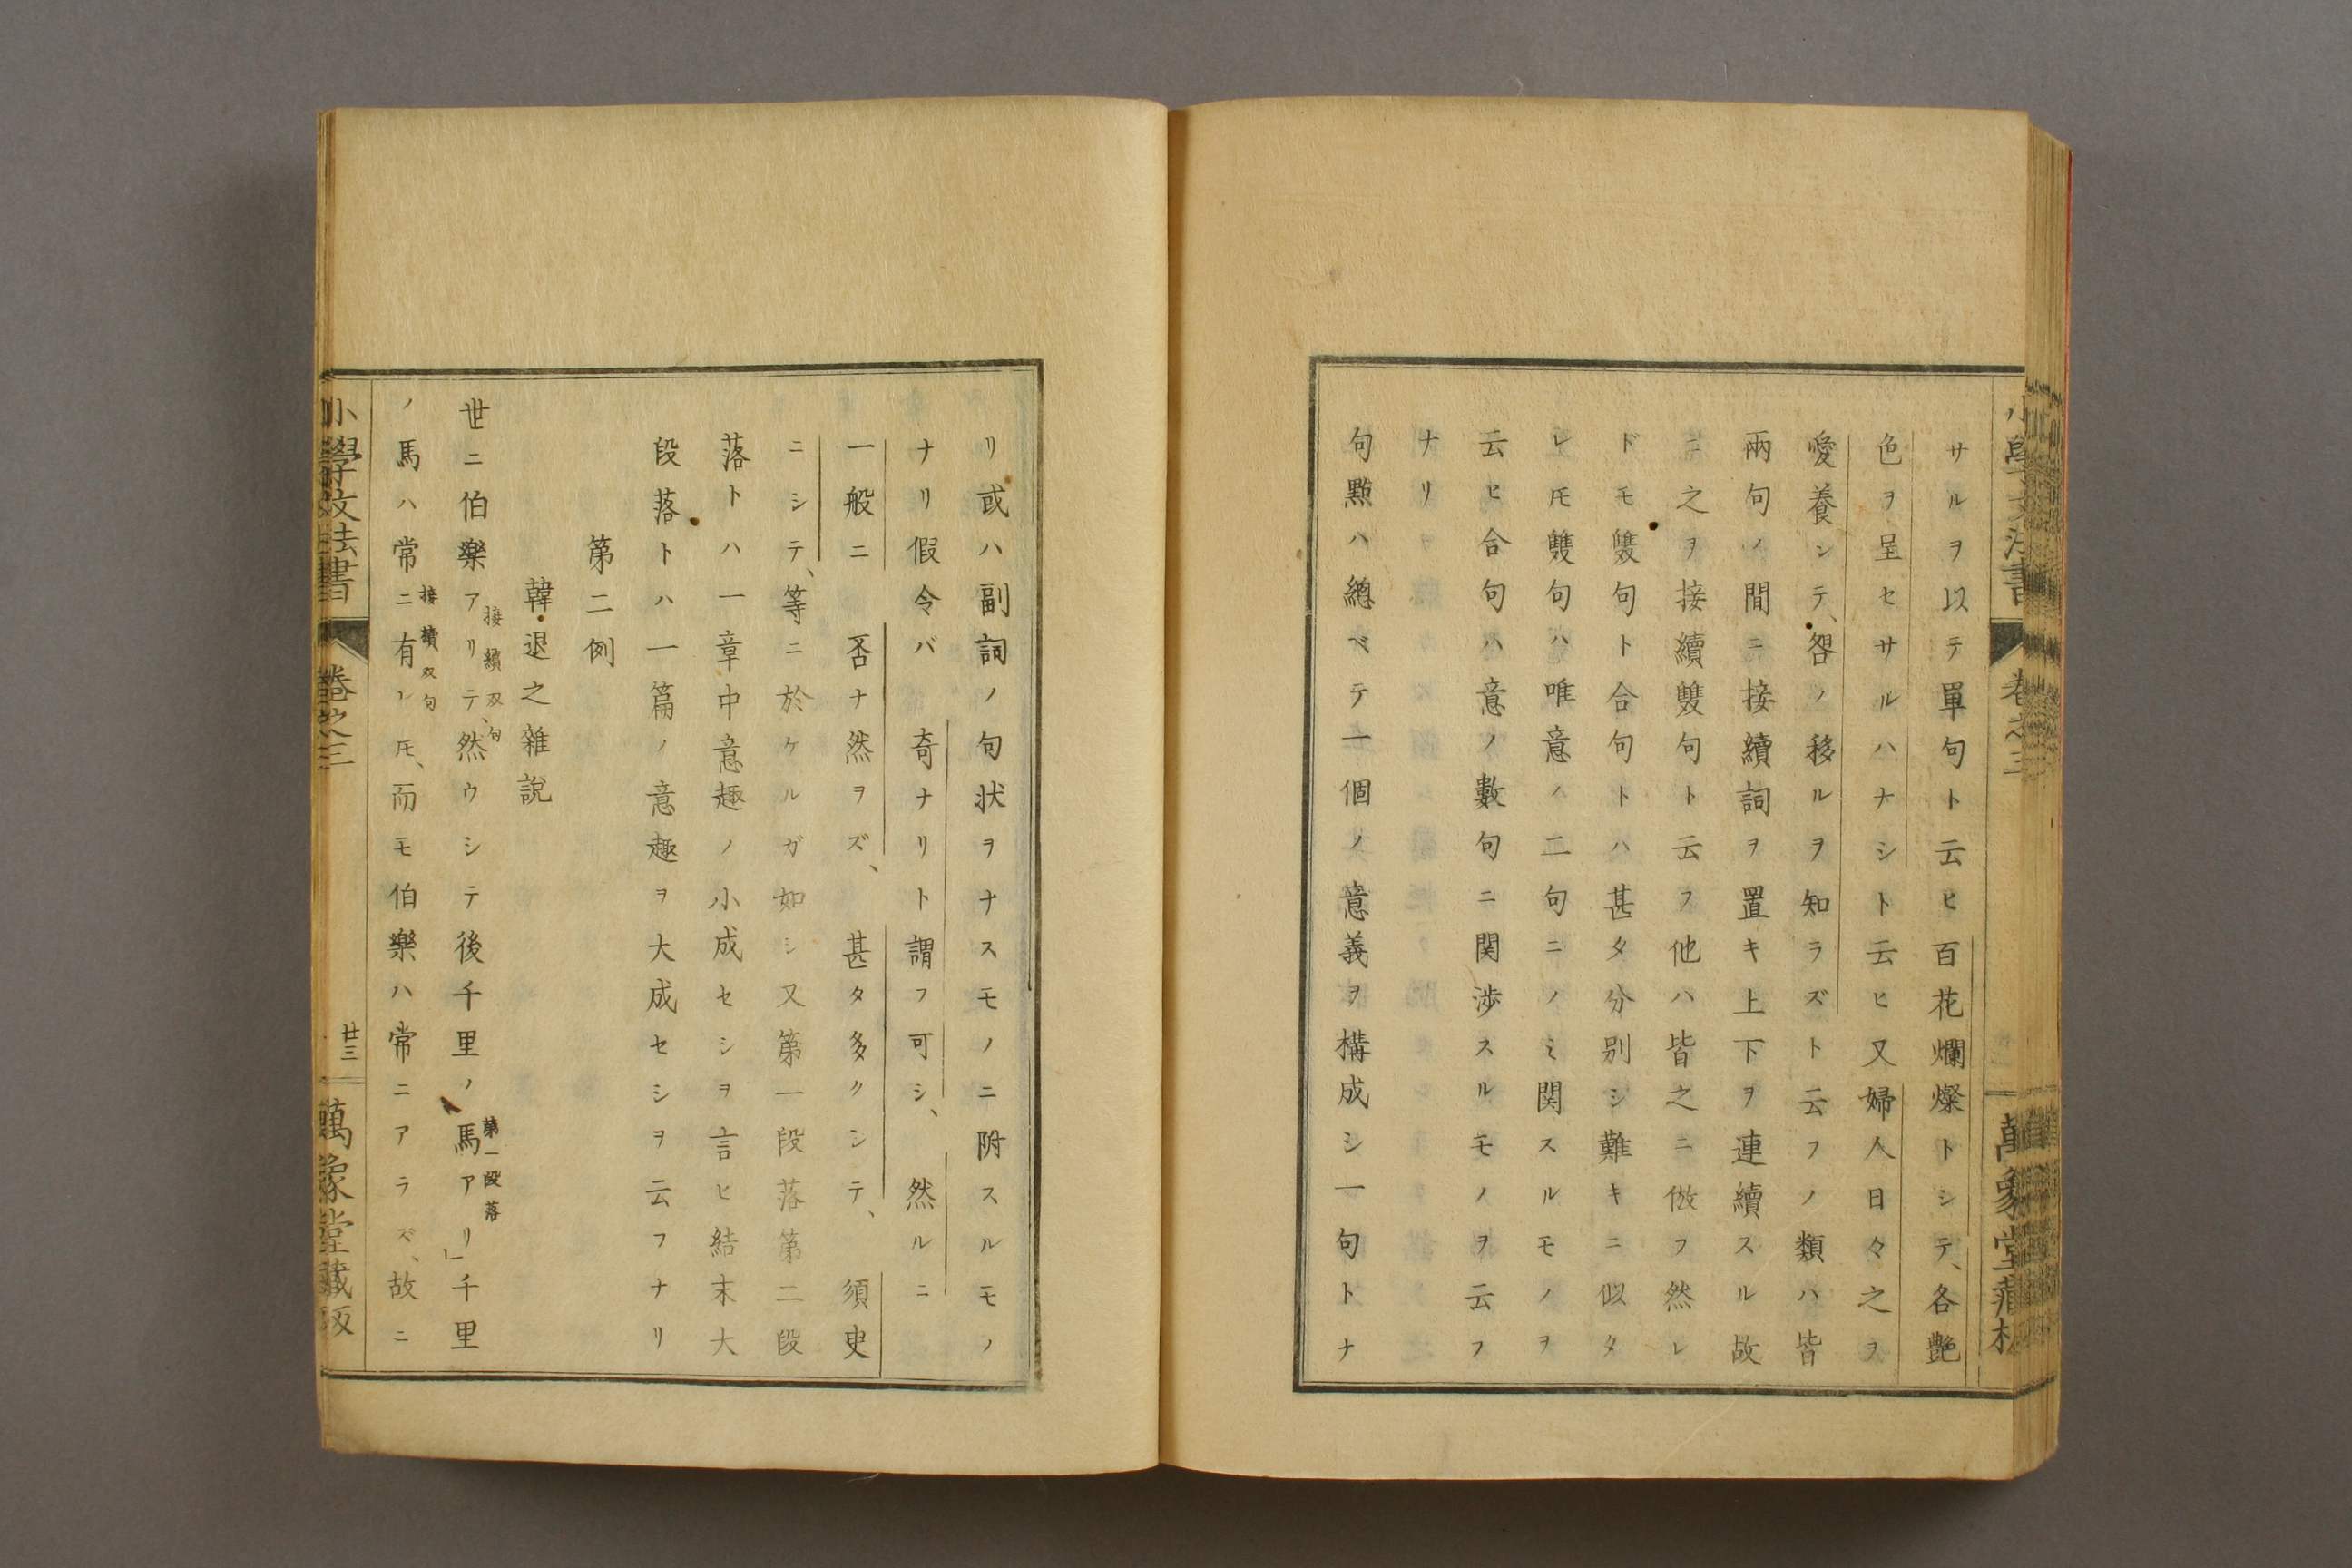 サルヲ以テ單句ト云ヒ百花爛燦トシテ、各艶
色ヲ呈セサルハナシト云ヒ又婦人日々之ヲ
愛養シテ、咎ノ移ルヲ知ラズト云フノ類ハ皆
兩句ノ間ニ接續詞ヲ置キ上下ヲ連續スル故
ニ之ヲ接續雙句ト云フ他ハ皆之ニ倣フ然レ
ドモ雙句ト合句トハ甚タ分別シ難キニ似タ
レ𪜈雙句ハ唯意ノ二句ニノミ関スルモノヲ
云ヒ合句ハ意ノ數句ニ関渉スルモノヲ云フ
ナリ
句點ハ總ベテ一個ノ意義ヲ構成シ一句トナ
リ或ハ副詞ノ句状ヲナスモノニ附スルモノ
ナリ假令バ奇ナリト謂フ可シ、然ルニ
一般ニ否ナ然ヲズ、甚タ多クシテ、須臾
ニシテ、等ニ於ケルガ如シ又第一段落第二段
落トハ一章中意趣ノ小成セシヲ言ヒ結末大
段落トハ一篇ノ意趣ヲ大成セシヲ云フナリ
第二例
韓退之雜説
世ニ伯樂アリテ、然ウシテ後千里ノ馬アリ」千里
接續双句
第一段落
ノ馬ハ常ニ有レ𪜈、而モ伯樂ハ常ニアラズ、故ニ
接續双句
小學文法書
卷之三
廿三
萬象堂藏版